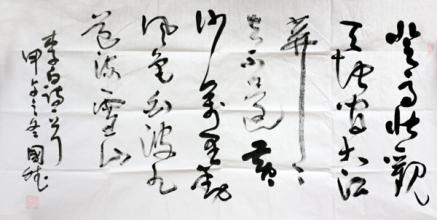 登高壮觀
天地间大江
茫茫
去不還黄
沙萬里動
風色白波九
道流雪山
李白詩句
甲午之冬國